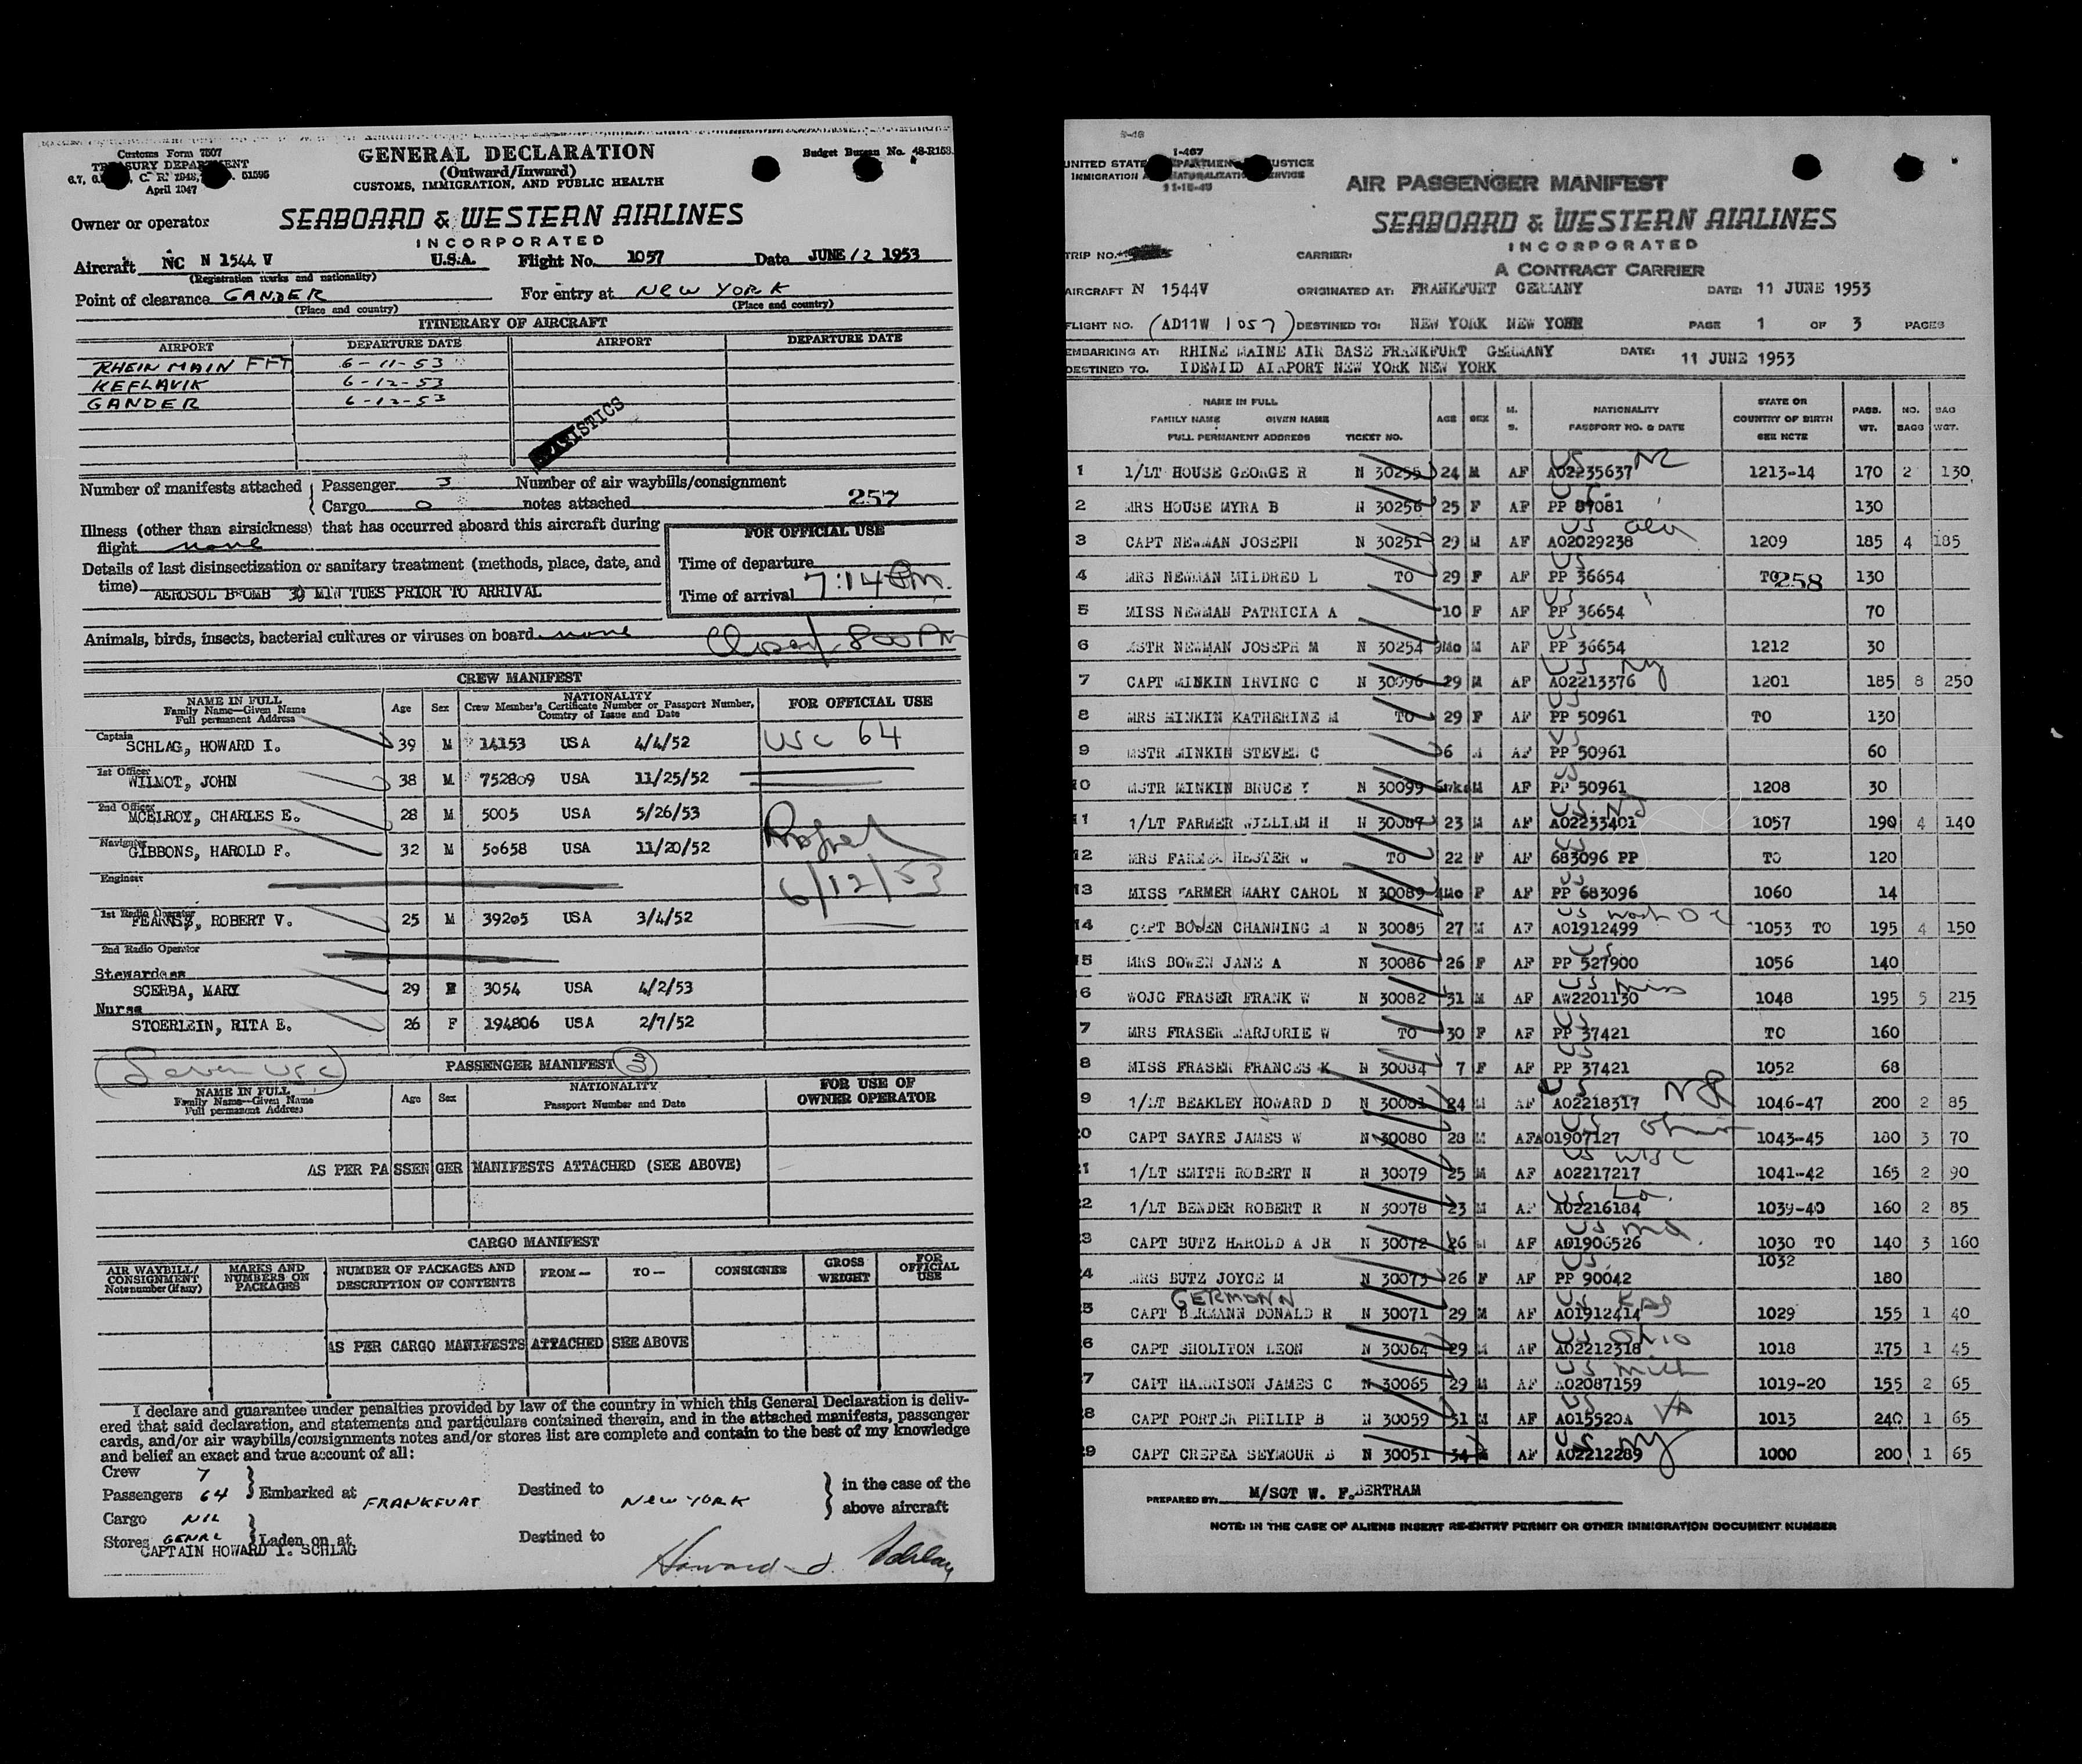 Customs Form 7507
TREASURY DEPARTMENT
April 1947
GENERAL DECLARATION
(Outward/Inward)
CUSTOMS, IMMIGRATION, AND PUBLIC HEALTH
Budget Bureau No. 48-R153.
Owner or operator SEABOARD & WESTERN AIRLINES
INCORPORATED
Aircraft NC N 1544 V U.S.A. Flight No. 1057 Date JUNE 12 1953
(Registration marks and nationality)
Point of clearance GANDER For entry at NEW YORK
(Place and country) (Place and country)
ITINERARY OF AIRCRAFT
AIRPORT DEPARTURE DATE AIRPORT DEPARTURE DATE
RHEIN MAIN FFT 6-11-53
KEFLAVIK 6-12-53
GANDER 6-12-53
STATISTICS
Number of manifests attached Passenger 3 Number of air waybills/consignment
Cargo 0 notes attached 257
Illness (other than airsickness) that has occurred aboard this aircraft during
flight none
FOR OFFICIAL USE
Details of last disinsectization or sanitary treatment (methods, place, date, and
time) AEROSOL BOMB 30 MINTUES PRIOR TO ARRIVAL
Time of departure
Time of arrival 7:14 Pm.
Animals, birds, insects, bacterial cultures or viruses on board none
Closed 800 PM
CREW MANIFEST
NAME IN FULL
Family Name—Given Name
Full permanent Address
Age Sex
NATIONALITY
Crew Member's Certificate Number or Passport Number,
Country of Issue and Date
FOR OFFICIAL USE
Captain
SCHLAG, HOWARD I. 39 M 14153 USA 4/4/52 USC 64
1st Officer
WILMOT, JOHN 38 M 752809 USA 11/25/52
2nd Officer
MCELROY, CHARLES E. 28 M 5005 USA 5/26/53
Navigator
GIBBONS, HAROLD F. 32 M 50658 USA 11/20/52
Engineer
6/12/53
1st Radio Operator
ROBERT V. 25 M 39205 USA 3/4/52
2nd Radio Operator
Stewardess
SCERBA, MARY 29 3054 USA 4/2/53
Nurse
STOERLEIN, RITA E. 26 F 194806 USA 2/7/52
Seven USC
PASSENGER MANIFEST 3
NAME IN FULL
Family Name—Given Name
Full permanent Address
Age Sex
NATIONALITY
Passport Number and Date
FOR USE OF
OWNER OPERATOR
AS PER PASSENGER MANIFESTS ATTACHED (SEE ABOVE)
CARGO MANIFEST
AIR WAYBILL/
CONSIGNMENT
Note number (if any)
MARKS AND
NUMBERS ON
PACKAGES
NUMBER OF PACKAGES AND
DESCRIPTION OF CONTENTS
FROM— TO— CONSIGNEE
GROSS
WEIGHT
FOR
OFFICIAL
USE
AS PER CARGO MANIFESTS ATTACHED SEE ABOVE
I declare and guarantee under penalties provided by law of the country in which this General Declaration is deliv-
ered that said declaration, and statements and particulars contained therein, and in the attached manifests, passenger
cards, and/or air waybills/consignments notes and/or stores list are complete and contain to the best of my knowledge
and belief an exact and true account of all:
Crew 7
Passengers 64 Embarked at FRANKFURT Destined to NEW YORK in the case of the
above aircraft
Cargo NIL
Stores GENRL Laden on at Destined to
CAPTAIN HOWARD I. SCHLAG
Howard I. Schlag
I-467
UNITED STATES DEPARTMENT OF JUSTICE
IMMIGRATION AND NATURALIZATION SERVICE
AIR PASSENGER MANIFEST
SEABOARD & WESTERN AIRLINES
INCORPORATED
TRIP NO. CARRIER: A CONTRACT CARRIER
AIRCRAFT N 1544V ORIGINATED AT: FRANKFURT GERMANY DATE: 11 JUNE 1953
FLIGHT NO. (AD11W 1057) DESTINED TO: NEW YORK NEW YORK PAGE 1 OF 3 PAGES
EMBARKING AT: RHINE MAINE AIR BASE FRANKFURT GERMANY DATE: 11 JUNE 1953
DESTINED TO. IDEWILD AIRPORT NEW YORK NEW YORK
NAME IN FULL
FAMILY NAME GIVEN NAME
FULL PERMANENT ADDRESS TICKET NO.
AGE SEX M. S.
NATIONALITY
PASSPORT NO. & DATE
STATE OR
COUNTRY OF BIRTH
SEE NOTE
PASS. WT. NO. BAGG BAG WGT.
1 1/LT HOUSE GEORGE R N 30255 24 M AF US A02235637 1213-14 170 2 130
2 MRS HOUSE MYRA B N 30256 25 F AF PP 87081 130
3 CAPT NEWMAN JOSEPH N 30251 29 M AF US A02029238 1209 185 4 185
4 MRS NEWMAN MILDRED L TO 29 F AF US PP 36654 TO 258 130
5 MISS NEWMAN PATRICIA A 10 F AF US PP 36654 70
6 MSTR NEWMAN JOSEPH M N 30254 9Mo M AF US PP 36654 1212 30
7 CAPT MINKIN IRVING C N 30096 29 M AF US NY A02213376 1201 185 8 250
8 MRS MINKIN KATHERINE M TO 29 F AF US PP 50961 TO 130
9 MSTR MINKIN STEVEN C 6 M AF US PP 50961 60
10 MSTR MINKIN BRUCE Y N 30099 6wks M AF US PP 50961 1208 30
11 1/LT FARMER WILLIAM H N 30087 23 M AF US NJ A02233401 1057 190 4 140
12 MRS FARMER HESTER W TO 22 F AF US 683096 PP TO 120
13 MISS FARMER MARY CAROL N 30089 4Mo F AF US PP 683096 1060 14
14 CAPT BOWEN CHANNING M N 30085 27 M AF US Wash D C A01912499 1053 TO 195 4 150
15 MRS BOWEN JANE A N 30086 26 F AF US PP 527900 1056 140
16 WOJG FRASER FRANK W N 30082 31 M AF US Miss AW2201130 1048 195 5 215
17 MRS FRASER MARJORIE W TO 30 F AF US PP 37421 TO 160
18 MISS FRASER FRANCES K N 30084 7 F AF US PP 37421 1052 68
19 1/LT BEAKLEY HOWARD D N 30081 24 M AF US A02218317 1046-47 200 2 85
20 CAPT SAYRE JAMES W N 30080 28 M AF US Ohio A01907127 1043-45 180 3 70
21 1/LT SMITH ROBERT N N 30079 25 M AF US Wisc A02217217 1041-42 165 2 90
22 1/LT BENDER ROBERT R N 30078 23 M AF US La. A02216184 1039-40 160 2 85
23 CAPT BUTZ HAROLD A JR N 30072 26 M AF US Md. A01906526 1030 TO 140 3 160
1032
24 MRS BUTZ JOYCE M N 30073 26 F AF US PP 90042 180
GERMANN
25 CAPT BERMANN DONALD R N 30071 29 M AF US Kas A01912414 1029 155 1 40
26 CAPT SHOLITON LEON N 30064 29 M AF US Ohio A02212318 1018 175 1 45
27 CAPT HARRISON JAMES C N 30065 29 M AF US Mich A02087159 1019-20 155 2 65
28 CAPT PORTER PHILIP B N 30059 31 M AF US VA A015520A 1013 240 1 65
29 CAPT CREPEA SEYMOUR B N 30051 34 M AF US NY A02212289 1000 200 1 65
PREPARED BY: M/SGT W. F. BERTRAM
NOTE: IN THE CASE OF ALIENS INSERT RE-ENTRY PERMIT OR OTHER IMMIGRATION DOCUMENT NUMBER